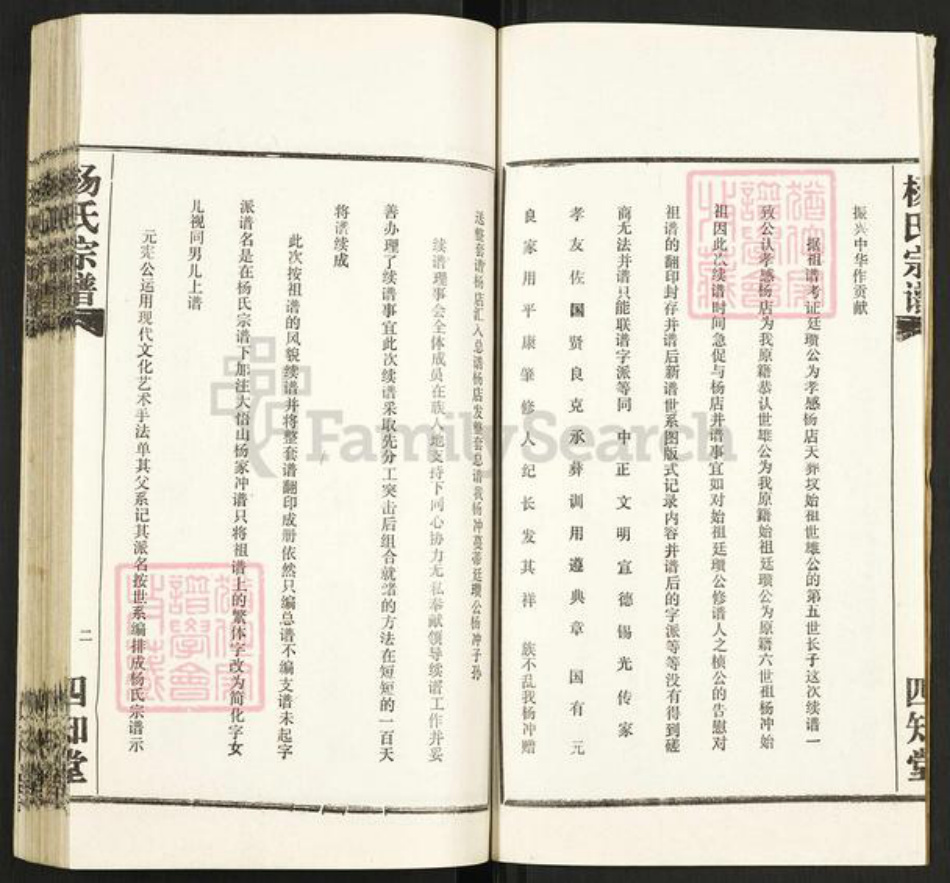 杨氏宗谱
四知堂
振兴中华作贡献
据祖谱考证廷瓒公为孝感杨店天井坟始祖世雄公的第五世长子这次续谱一
致公认孝感杨店为我原籍恭认世雄公为我原籍始祖廷瓒公为原籍六世祖杨冲始
祖因此次续谱时间急促与杨店并谱事宜如对始祖廷瓒公修谱人之桢公的告慰对
祖谱的翻印封存并谱后新谱世系图版式记录内容并谱后的字派等等没有得到磋
商无法并谱只能联谱字派等同 中正文明宣德锡光传家
孝友佐国贤良克承彝训用遵典章国有元
良家用平康肇修人纪长发其祥 族不乱我杨冲赠
送整套谱杨店汇入总谱杨店发整套总谱我杨冲蔓蒂廷瓒公杨冲子孙
续谱理事会全体成员在族人地支持下同心协力无私奉献领导续谱工作并妥
善办理了续谱事宜此次续谱采取先分工突击后组合就绪的方法在短短的一百天
将谱续成
此次按祖谱的风貌续谱并将整套谱翻印成册依然只编总谱不编支谱未起字
派谱名是在杨氏宗谱下加注大悟山杨家冲谱只将祖谱上的繁体字改为简化字女
儿视同男儿上谱
元宪公运用现代文化艺术手法单其父系记其派名按世系编排成杨氏宗谱示
杨氏宗谱
二
四知堂
FamilySearch